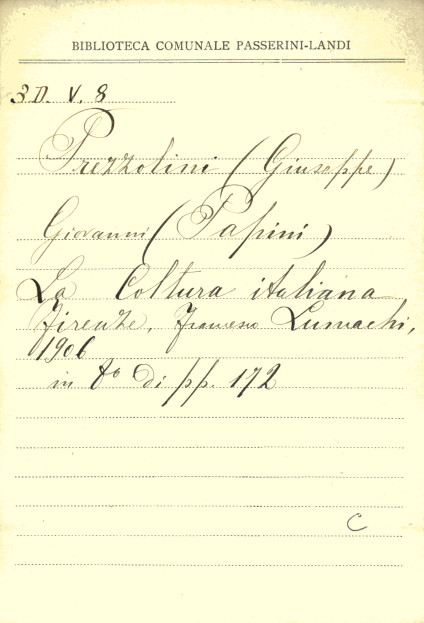 BIBLIOTECA COMUNALE PASSERINI-LANDI
3D. V. 8
Prezzolini (Giuseppe)
Giovanni (Papini)
La Coltura italiana
Firenze, Francesco Lumachi,
1906
in 8o di pp. 172
C